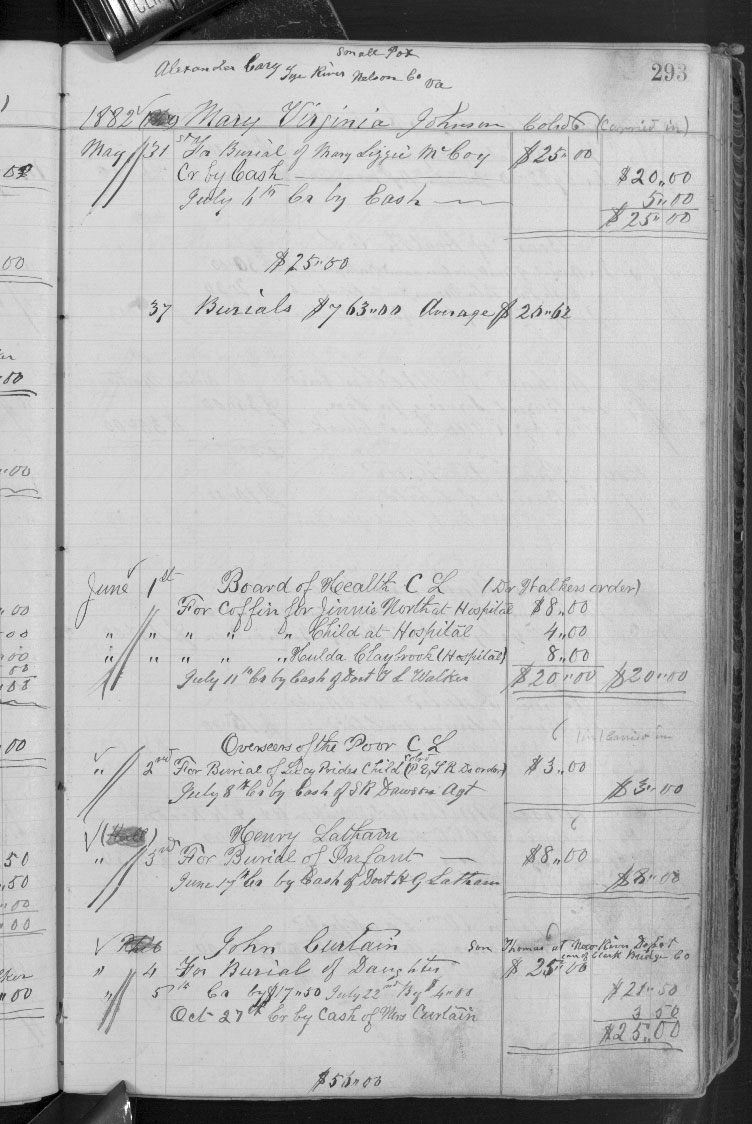 Small Pox
Alexander Cary Tye River Nelson Co Va
293
1882 Mary Virginia Johnson Cold (Carried in)
May 31st For Burial of Mary Lizzie McCoy $25.00
Cr by Cash $20.00
July 6th Cr by Cash 5.00
$25.00
$25.00
37 Burials $763.00 Average $20.62
June 1st Board of Health C L (Dr Walkers order)
For Coffin for Jinnie North at Hospital $8.00
" " " " " Child at Hospital 4.00
" " " " " Hulda Claybrook (Hospital) 8.00
July 11th Cr by Cash of Doct T L Walker $20.00 $20.00
Overseers of the Poor C L
" 2nd For Burial of Lucy Prides Child Cold (P E, S R Ds order) $3.00
July 8th Cr by Cash of S R Dawson Agt $3.00
Henry Latham
" 3rd For Burial of Infant $8.00
June 17th Cr by Cash of Doct H G Latham $8.00
John Curtain son Thomas at New River Depot
care of Clark Bridge Co
" 4 For Burial of Daughter $25.00
" 5th Cr by $17.50 July 22nd By $4.00 $21.50
Oct 27th Cr by Cash of Mrs Curtain 3 50
$25.00
$56.00